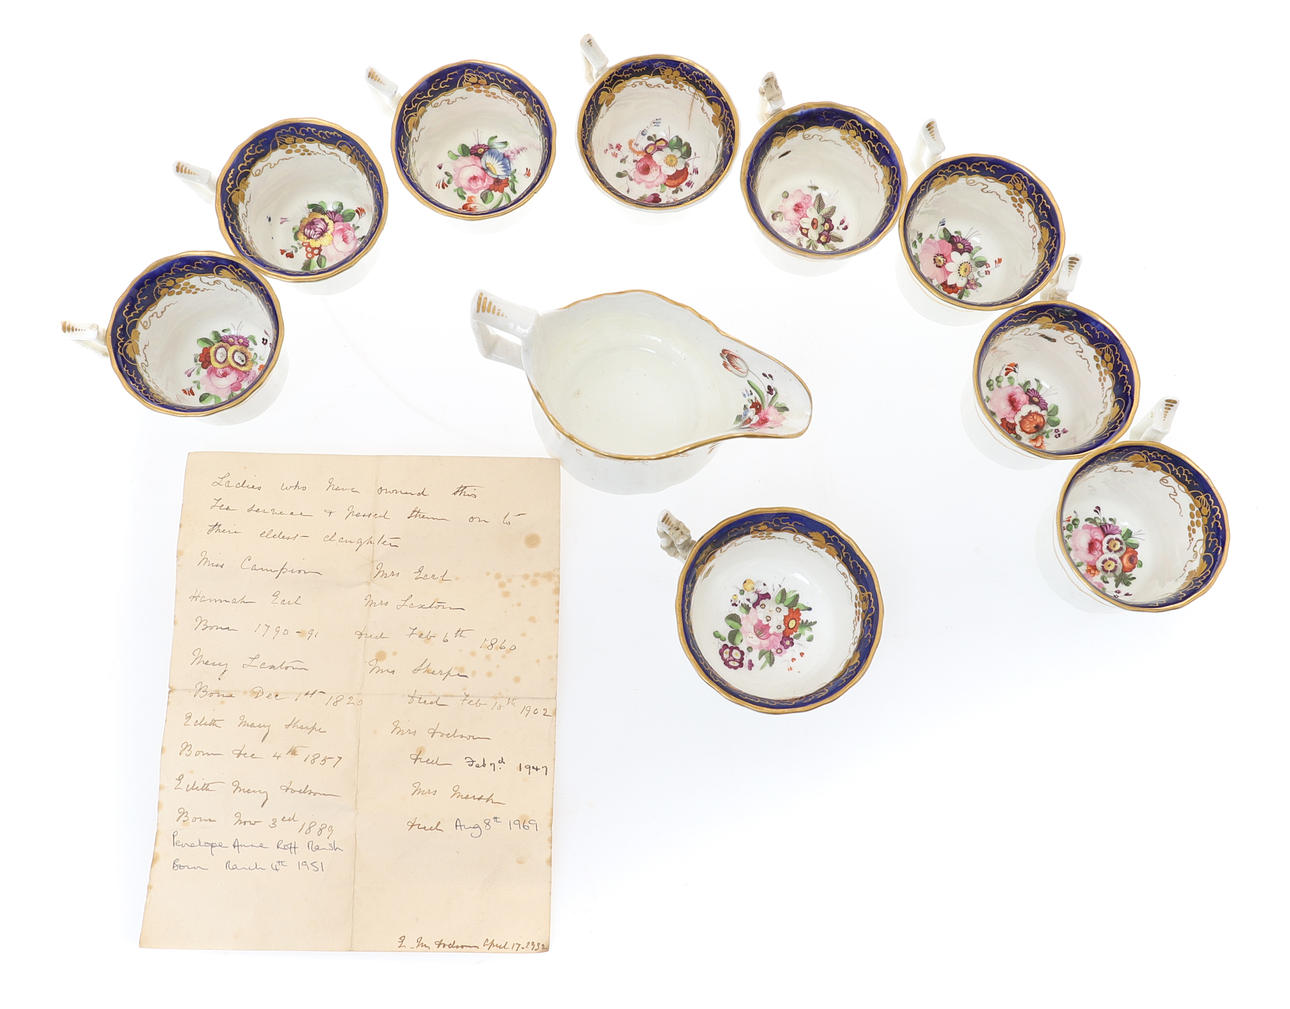 Ladies who have owned this
Tea service & passed them on to
their eldest daughter
Miss Campion Mrs Earl
Hannah Earl Mrs Sexton
Born 1790-91 died Feb 6th 1860
Mary Sexton Mrs Sharpe
Born Dec 1st 1820 died Feb 10th 1902
Edith Mary Sharpe Mrs Dodson
Born Dec 4th 1857 died Feb 7d. 1947
Edith Mary Dodson Mrs Marsh
Born Nov 3rd 1889 died Aug 8th 1969
Penelope Anne Roff Marsh
Born March 4th 1951
E. M. Dodson April 17-1932